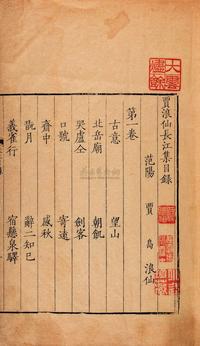 賈浪仙長江集目錄
范陽　賈　島　浪仙
第一卷
古意　望山
北岳廟　朝飢
哭盧仝　劍客
口號　寄遠
齋中　感秋
翫月　辭二知己
義雀行　宿懸泉驛